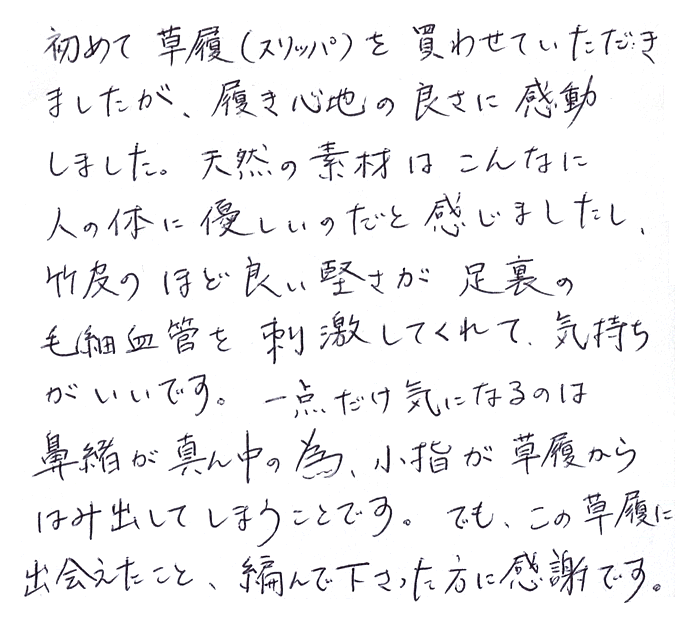 初めて草履(スリッパ)を買わせていただき
ましたが、履き心地の良さに感動
しました。天然の素材はこんなに
人の体に優しいのだと感じましたし、
竹皮のほど良い堅さが足裏の
毛細血管を刺激してくれて、気持ち
がいいです。一点だけ気になるのは
鼻緒が真ん中の為、小指が草履から
はみ出してしまうことです。でも、この草履に
出会えたこと、編んで下さった方に感謝です。